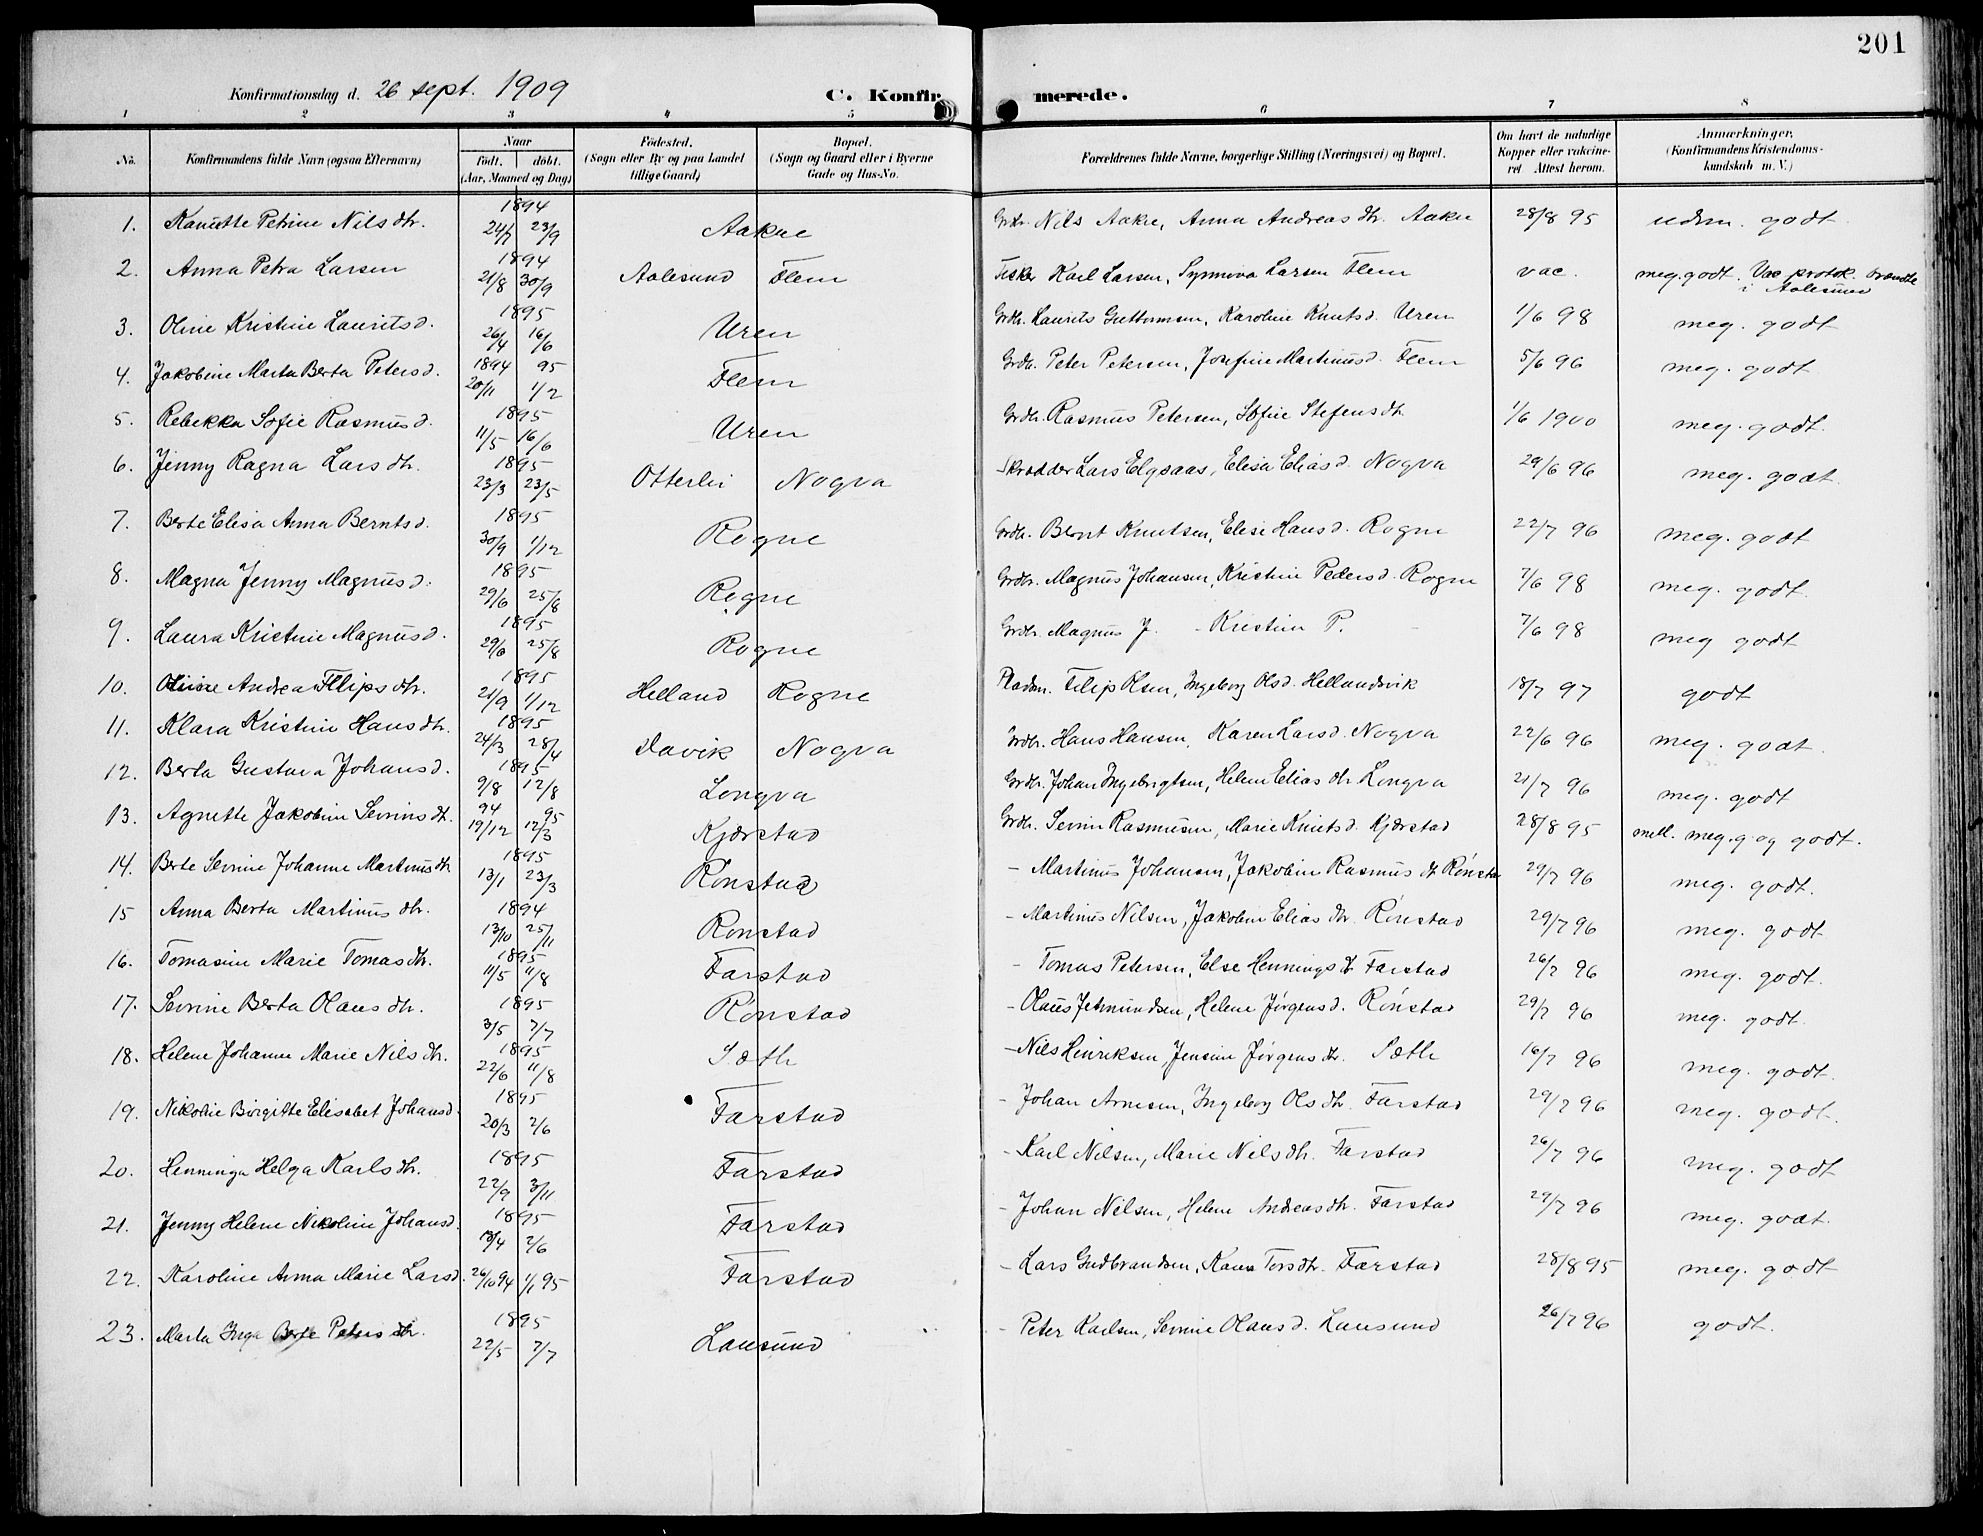 201
Konfirmationsdag d. 26 sept. 1909 C. Konfir merede.
1 2 3 4 5 6 7 8
No. Konfirmandens fulde Navn (ogsaa Efternavn) Naar födt. döbt. (Aar, Maaned og Dag) Födested. (Sogn eller By og paa Landet tillige Gaard) Bopæl. (Sogn og Gaard eller i Byerne Gade og Hus-No. Forældrenes fulde Navne, borgerlige Stilling (Næringsvei) og Bopæl. Om havt de naturlige Kopper eller vakcineret. Attest herom. Anmærkninger. (Konfirmandens Kristendomskundskab m. V.)
1. Kanutte Petrine Nilsdtr. 1894 24/7 23/9 Aakre Grdbr. Nils Aakre, Anna Andreasdtr. Aakre 28/8 95 udm. godt
2. Anna Petra Larsen 1894 21/8 30/9 Aalesund Flem Fisker Karl Larsen, Synnøva Larsen Flem vac. meg. godt. Vac protok. brændte i Aalesund
3. Oline Kristine Lauritsd. 1895 26/4 16/6 Uren Grdbr. Laurits Guttormsen, Karoline Knutsd. Uren 1/6 98 meg. godt
4. Jakobine Marta Berta Petersd. 1894 95 20/11 1/2 Flem Grdbr. Peter Petersen, Josefine Martinusd. Flem 5/6 96 meg. godt
5. Rebekka Sofie Rasmusd. 1895 11/5 16/6 Uren Grdbr. Rasmus Petersen, Sofie Stefensdtr. 1/6 1900 meg. godt.
6. Jenny Ragna Larsdtr. 1895 23/3 23/5 Otterlei Nogva Skrædder Lars Elgsaas, Elisa Eliasd. Nogva 29/6 96 meg. godt.
7. Berte Elisa Anna Berntsd. 1895 30/9 1/12 Rogne Grdbr. Bernt Knutsen, Elise Hansd. Rogne 22/7 96 meg. godt
8. Magna Jenny Magnusd. 1895 29/6 25/8 Rogne Grdbr. Magnus Johansen, Kristine Pedersd. Rogne 7/6 98 meg. godt.
9. Laura Kristine Magnusd. 1895 29/6 25/8 Rogne Grdbr. Magnus J. - Kristine P. - 7/6 98 meg godt
10. Andrea Filipsdtr. 1895 21/9 1/12 Helland Rogne Pladsm. Filip Olsen, Ingeborg Olsd. Hellandsvik 18/7 97 godt
11. Klara Kristine Hansdtr. 1895 24/3 28/4 Davik Nogva Grdbr. Hans Hansen, Karen Larsd. Nogva 22/6 96 meg. godt.
12. Berta Gustava Johansd. 1895 9/8 12/8 Longva Grdbr. Johan Ingebrigtsen, Helene Eliasdtr. Longva 21/7 96 meg. godt
13. Agnette Jakobine Sevrinsdtr. 94 95 19/12 12/3 Kjærstad Grdbr. Sevrin Rasmusen, Marie Knutsd. Kjærstad 28/8 95 mell. meg. g og godt.
14. Berte Sevrine Johanne Martinusdtr 1895 13/1 23/3 Rønstad - Martinus Johansen, Jakobine Rasmusdtr Rønsta 29/7 96 meg. godt.
15 Anna Berta Martinusdtr. 1894 13/10 25/11 Rønstad - Martinus Nilsen, Jakobine Eliasdtr. Rønstad 29/7 96 meg. godt
16. Tomasine Marie Tomasdtr. 1895 11/5 11/8 Farstad - Tomas Petersen, Else Henningsdtr Farstad 26/7 96 meg. godt.
17. Sevrine Berta Olausdtr. 1895 3/5 7/7 Rønstad - Olaus Jetmundsen, Helene Jørgensd. Rønstad 29/7 96 meg. godt.
18. Helene Johanne Marie Nilsdtr. 1895 22/6 11/8 Sætre - Nils Henriksen, Jensine Jørgensdtr. Sætre 16/7 96 meg. godt.
19. Nikoline Birgitte Elisabet Johansd. 1895 20/3 2/6 Farstad - Johan Arnesen, Ingeborg Olsdtr. Farstad 29/7 96 meg. godt.
20. Henninga Helga Karlsdtr. 1895 22/9 3/11 Farstad - Karl Nilsen, Marie Nilsdtr. Farstad 26/7 96 meg. godt
21. Jenny Helene Nikoline Johansd. 1895 13/4 2/6 Farstad - Johan Nilsen, Helene Andreasdtr. Farstad 29/7 96 meg. godt.
22. Karoline Anna Marie Larsd. 26/10 94 1/1 95 Farstad - Lars Gudbrandsen, Torsdtr. Farstad 28/8 95 meg. godt
23. Marta Inga Berte Petersdtr. 1895 22/5 7/7 Lausund - Peter Karlsen, Sevrine Olausd. Lausund 26/7 96 godt.